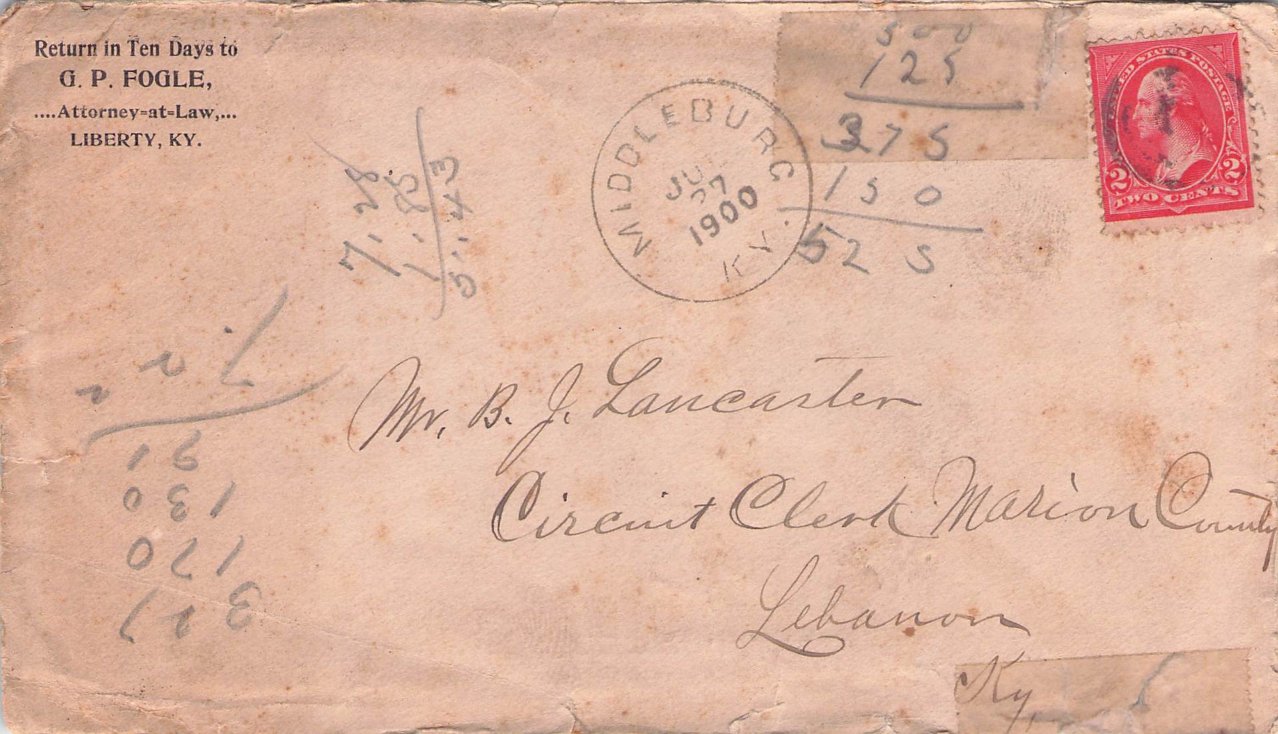 Return in Ten Days to
G. P. FOGLE,
....Attorney=at=Law,...
LIBERTY, KY.
MIDDLEBURG
1900
KY.
500
125
375
150
525
UNITED STATES POSTAGE
2 2
TWO CENTS
7.28
1.85
5.43
Mr. B. J. Lancaster
Circuit Clerk Marion County
Lebanon
Ky,
327
170
130